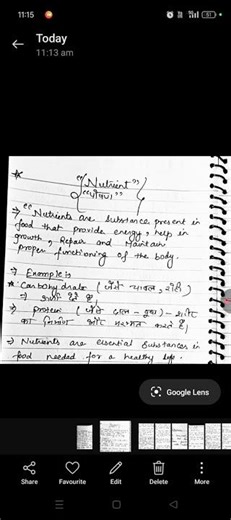 11:15
51
Today
11:13 am
"Nutrient"
"पोषण"
→ "Nutrients are substance present in
food that provide energy, help in
growth, Repair and Maintain
proper functioning of the body.
→ Example is
* Carbohydrate (जैसे चावल, रोटी)
→ ऊर्जा देते है,
→ protein (जैसे दाल - दूध) -
का निर्माण और मरम्मत करते है,
→ Nutrients are essential substances in
food needed for a healthy life.
Google Lens
Share
Favourite
Edit
Delete
More